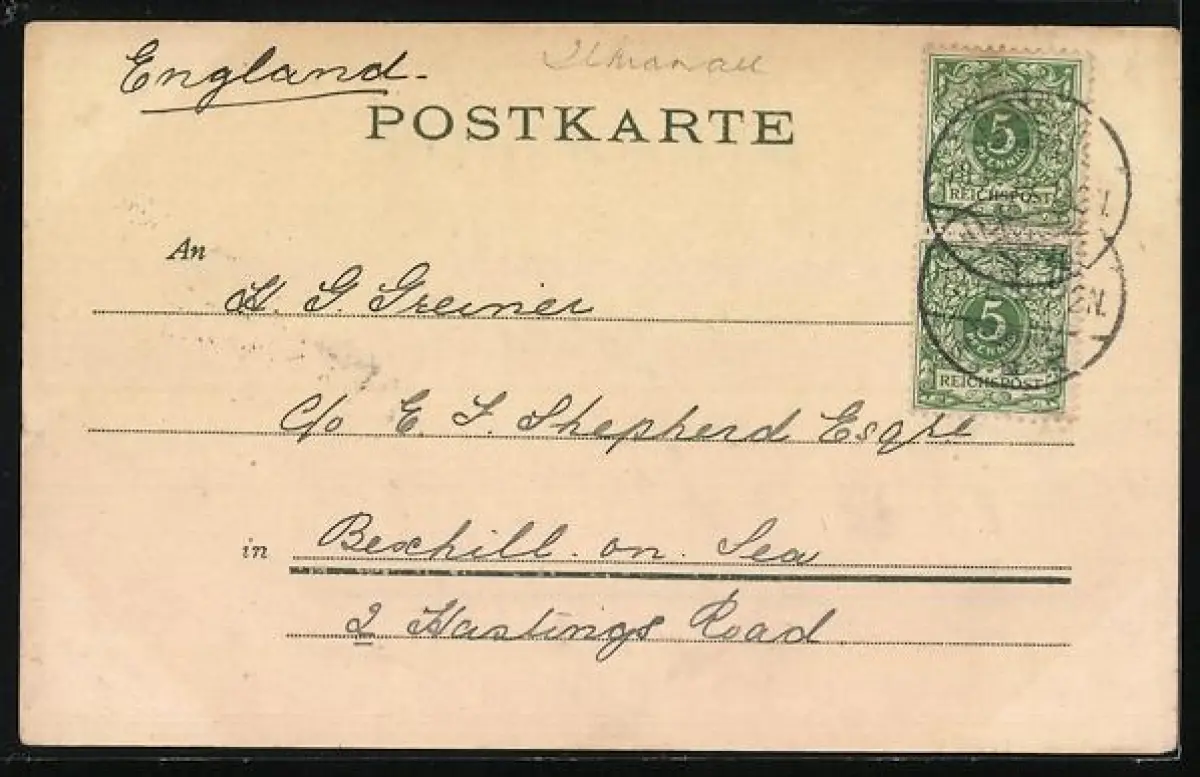 England.
POSTKARTE
5
PFENNIG
REICHSPOST
An
H. G. Greiner
5
PFENNIG
REICHSPOST
c/o E. J. Shepherd Esqre
in Bexhill. on. Sea
2 Hastings Road